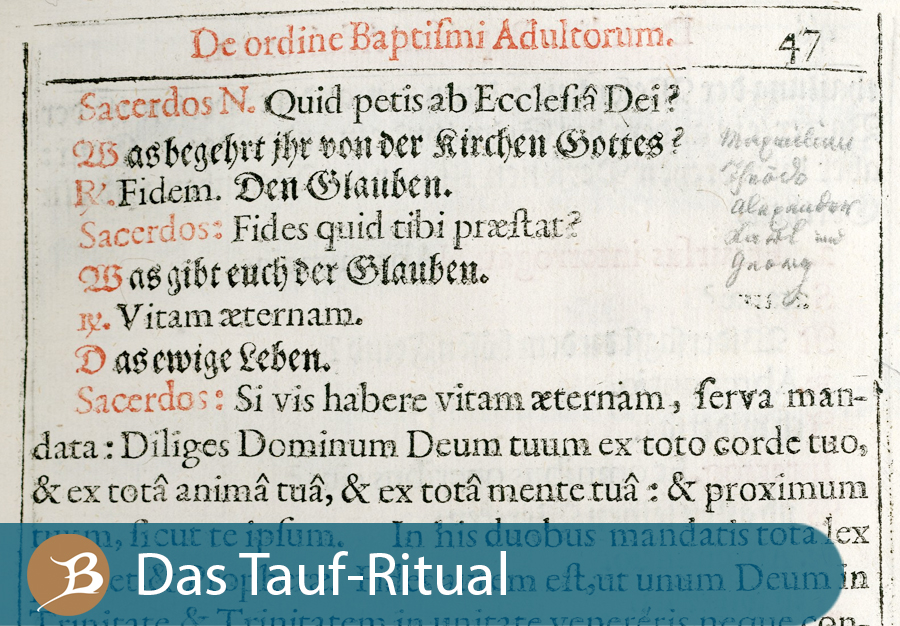 De ordine Baptiſmi Adultorum.
47
Sacerdos N. Quid petis ab Eccleſiâ Dei?
Was begehrt jhr von der Kirchen Gottes?
℟. Fidem. Den Glauben.
Sacerdos: Fides quid tibi præſtat?
Was gibt euch der Glauben.
℟. Vitam æternam.
Das ewige Leben.
Sacerdos: Si vis habere vitam æternam, ſerva man-
data: Diliges Dominum Deum tuum ex toto corde tuo,
& ex totâ animâ tuâ, & ex totâ mente tuâ: & proximum
tuum, ſicut te ipſum. In his duobus mandatis tota lex
eſt, ut unum Deum in
Trinitate & Trinitatem in unitate veneréris neque con-
Maximilian
Theodo
Alexander
Karl und
Georg
B Das Tauf-Ritual